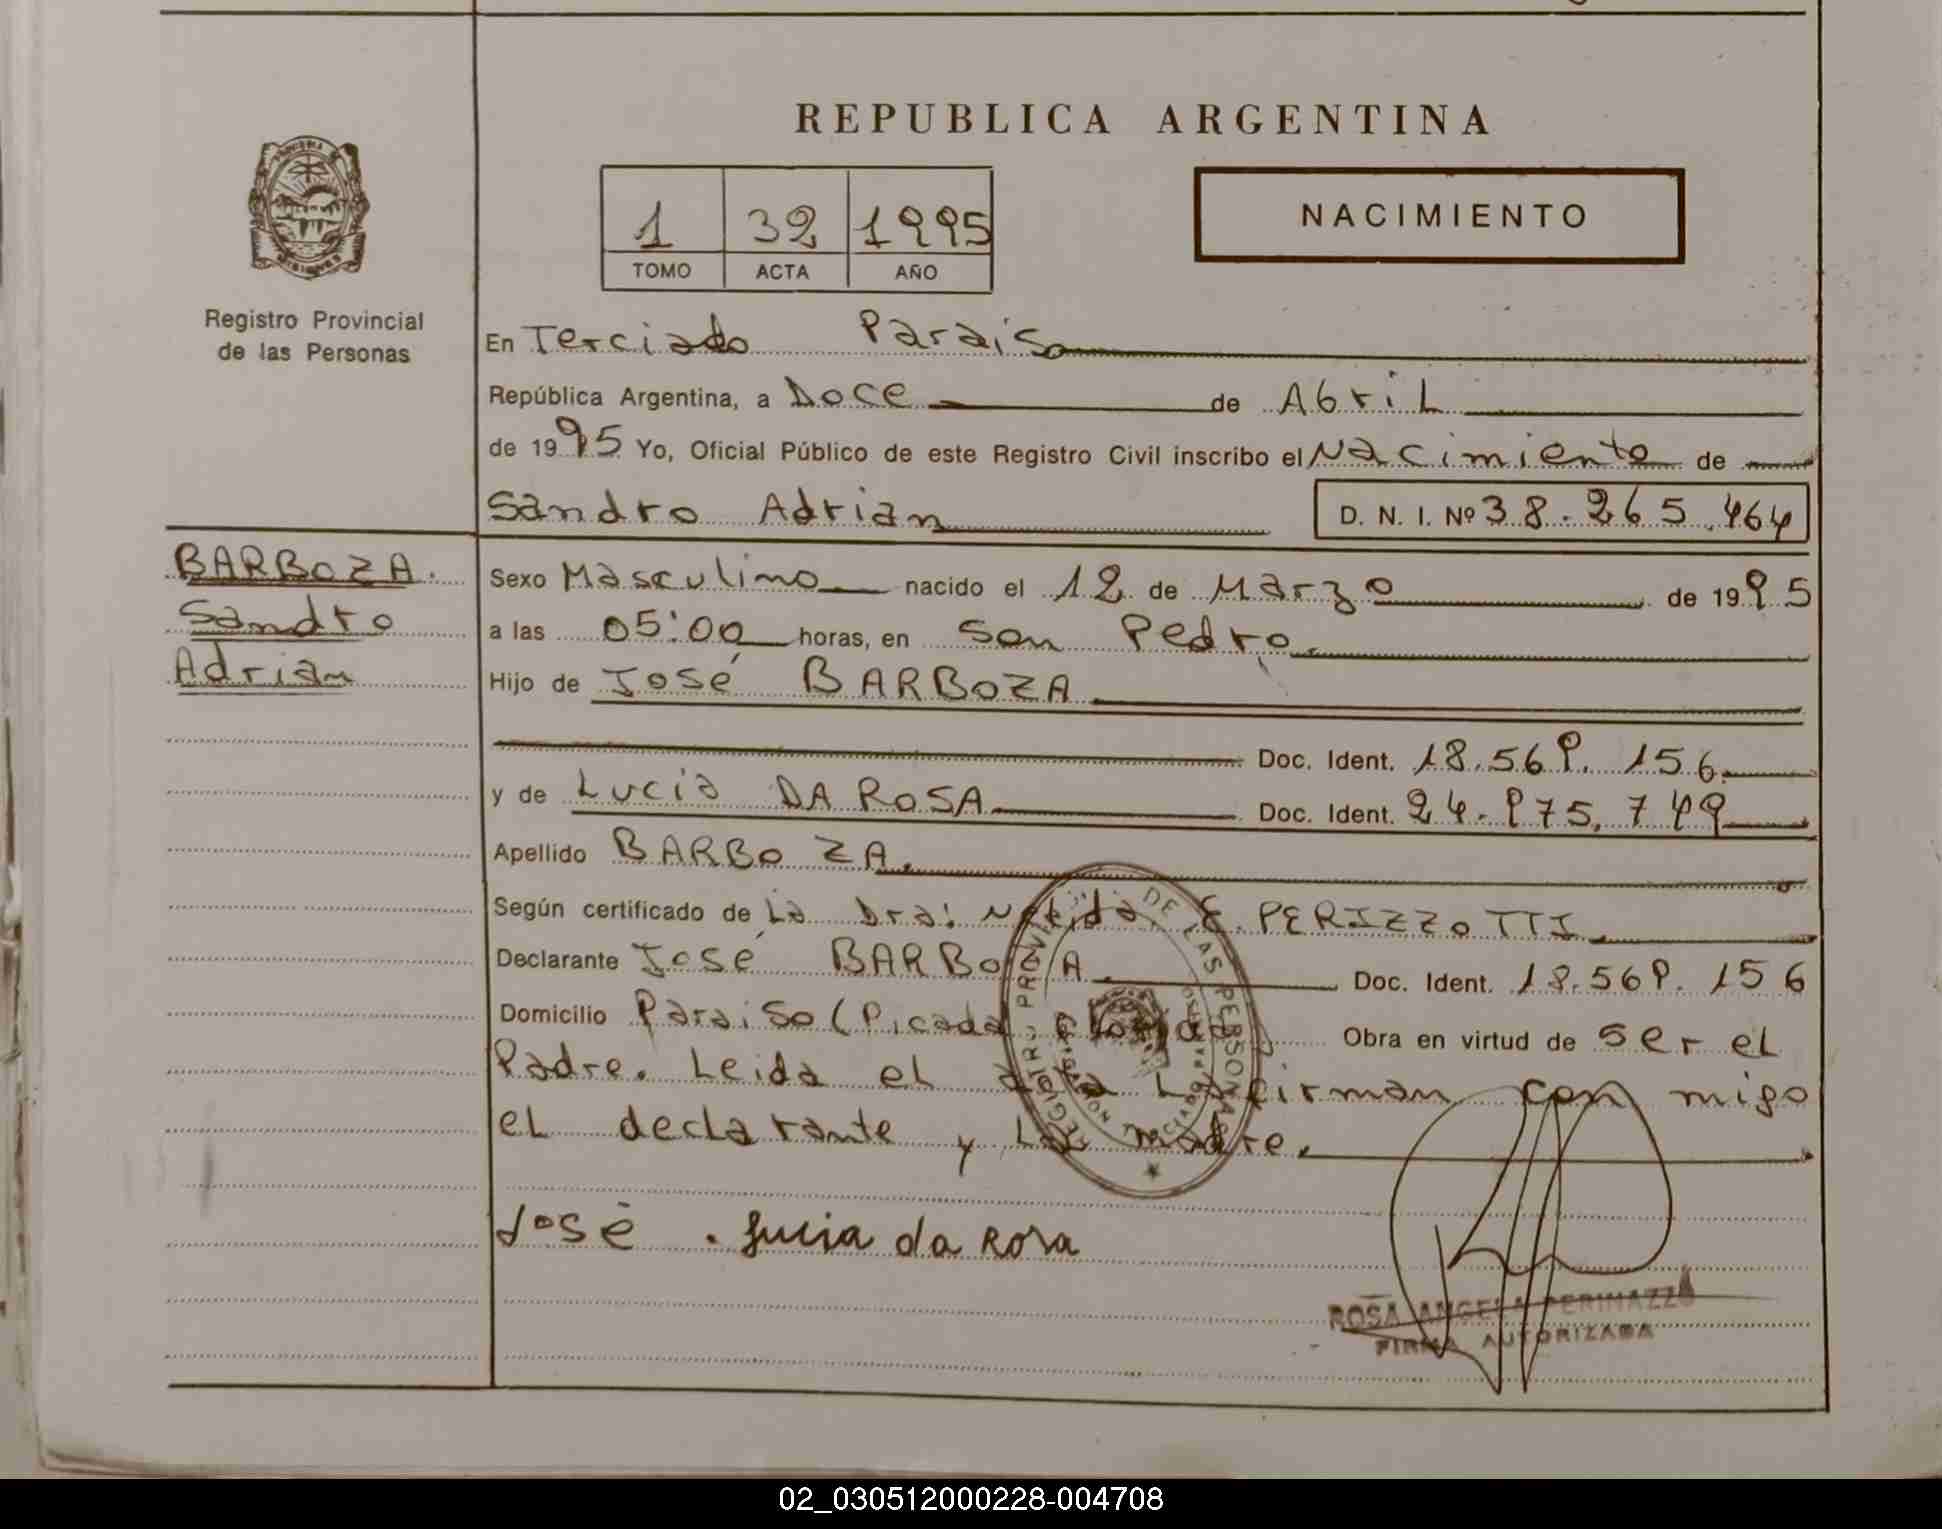 REPUBLICA ARGENTINA
1 32 1995
TOMO ACTA AÑO
NACIMIENTO
Registro Provincial
de las Personas
En Terciado Paraiso
República Argentina, a Doce de Abril
de 1995 Yo, Oficial Público de este Registro Civil inscribo el Nacimiento de
Sandro Adrian D. N. I. Nº 38.265.464
BARBOZA.
Sandro
Adrian
Sexo Masculino nacido el 12 de Marzo de 1995
a las 05:00 horas, en San Pedro.
Hijo de José BARBOZA
Doc. Ident. 18.569.156
y de Lucia DA ROSA Doc. Ident. 24.975.749
Apellido BARBOZA.
Según certificado de La Dra: Nelida E. PERIZZOTTI
Declarante José BARBOZA Doc. Ident. 18.569.156
Domicilio Paraiso (Picada Obra en virtud de ser el
Padre. Leida el acta La firman con migo
el declarante y La madre.
REGISTRO PROVINCIAL DE LAS PERSONAS
José . Lucia da Rosa
ROSA ANGELA PERINAZZO
FIRMA AUTORIZADA
02_030512000228-004708